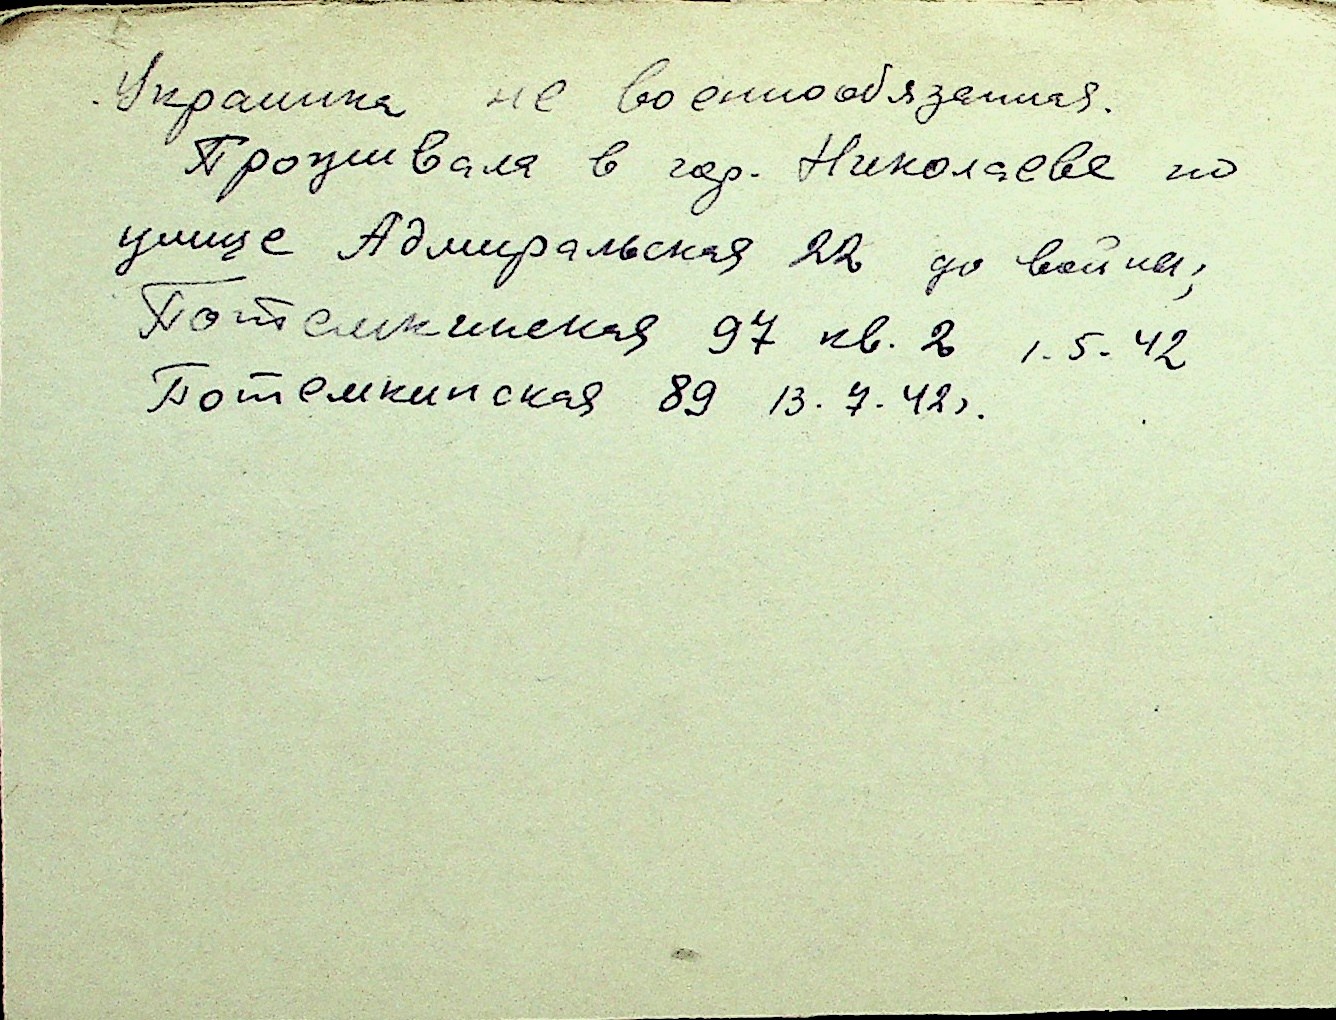 Украинка не военнообязанная.
Проживала в гор. Николаеве по
улице Адмиральская 22 до войны,
Потемкинская 97 кв. 2 1.5.42
Потемкинская 89 13.7.42г.